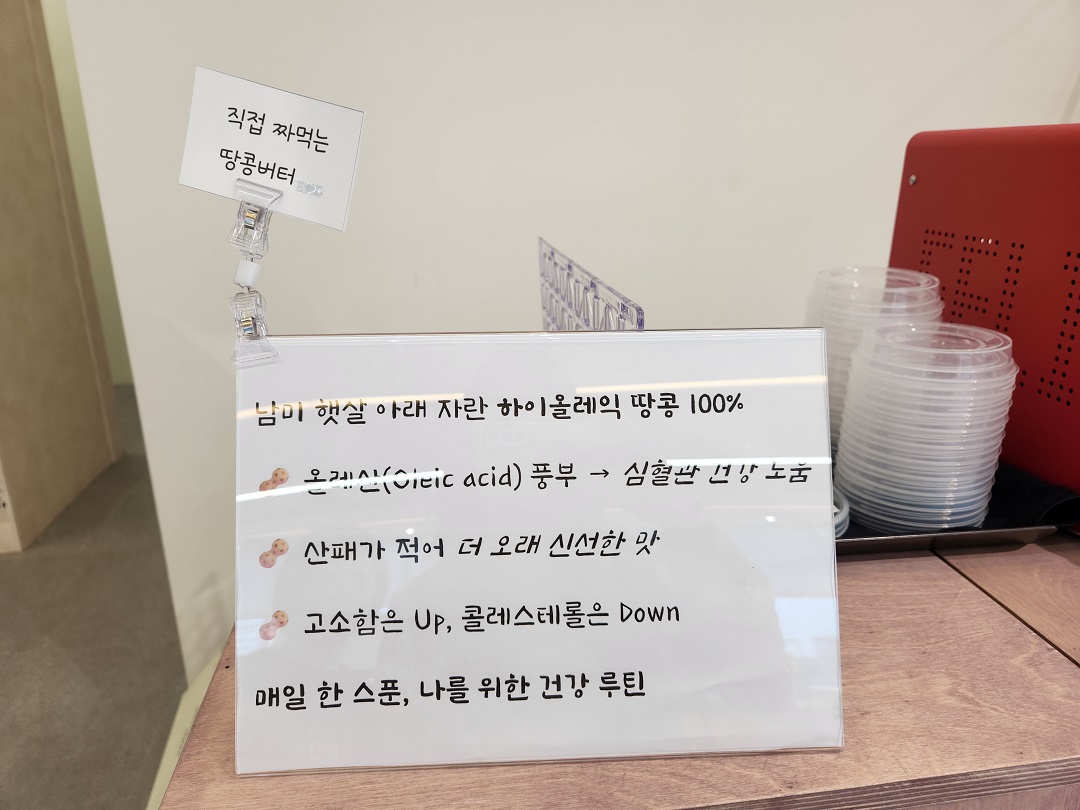 직접 짜먹는
땅콩버터
남미 햇살 아래 자란 하이올레익 땅콩 100%
올레산(Oleic acid) 풍부 → 심혈관 건강 도움
산패가 적어 더 오래 신선한 맛
고소함은 Up, 콜레스테롤은 Down
매일 한 스푼, 나를 위한 건강 루틴